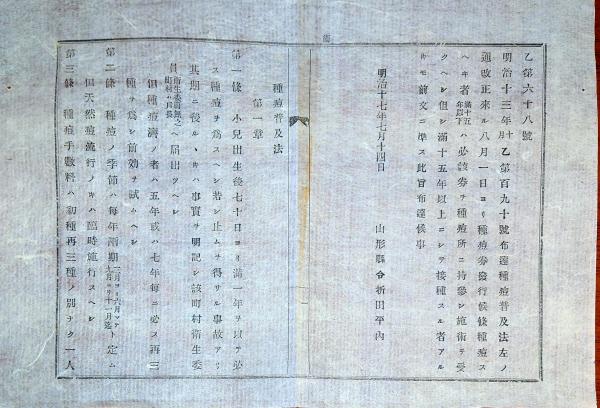 乙第六十八號
明治十三年十月乙第百九十號布達種痘普及法左ノ
通改正來ル八月一日ヨリ種痘券發行候條種痘ス
ヘキ者滿十五年以下ハ必該券ヲ種痘所ニ持參シ施術ヲ受
クヘシ但シ滿十五年以上ニシテ接種スル者アル
トキモ前文ニ準ス此旨布達候事
明治十七年七月十四日
山形縣令折田平內
種痘普及法
第一章
第一條 小兒出生後七十日ヨリ滿一年ヲ以テ必
ス種痘ヲ爲スヘシ若シ止ムヲ得サル事故アリ
其期ニ後ルヽトキハ事實ヲ明記シ該町村衛生委
員衛生委員無之町村ハ戶長ヘ屆出ツヘシ
但種痘濟ノ者ハ五年或ハ七年每ニ必ス再三
種ヲ爲シ前効ヲ試ムヘシ
第二條 種痘ノ季節ハ每年兩期二月ヨリ六月マテ九月ヨリ十一月迄ト定ム
但天然痘流行ノトキハ臨時施行スヘシ
第三條 種痘手數料ハ初種再三種ノ別ナク一人